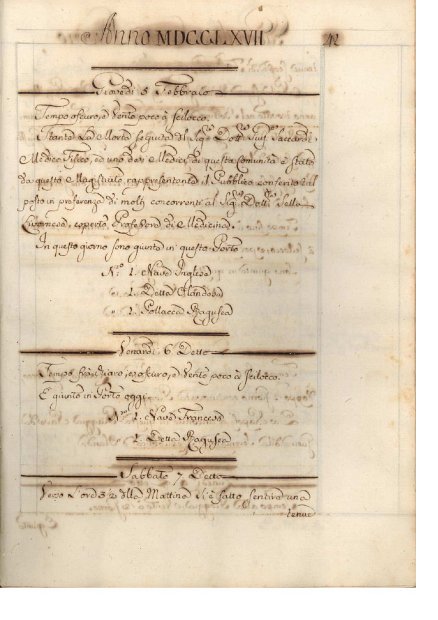 Anno MDCCLXVII
42
Giovedì 5 Febbraio
Tempo oscuro, e Vento poco à scilocco.
Stante La Morte seguita del Sig.r Dott.r
Medico Fisico, ed uno dei Medici di questa Comunità è stato
da questo Magistrato rappresentante il Pubblico conferito il
posto in preferenza di molti concorrenti al Sig.r Dott.r
esperto Professore di Medicina.
In questo giorno sono giunte in questo Porto
N.° 1. Nave Inglese
1. Detta Olandese
1. Pollacca Ragusea
Venardì 6 Detto
Tempo oscuro, e Vento poco à scilocco.
E giunto in Porto oggi
N.° 1. Nave Francese
1. Detta Ragusea
Sabbato 7 Detto
Verso L'ore 2 della Mattina si è fatto sentire una